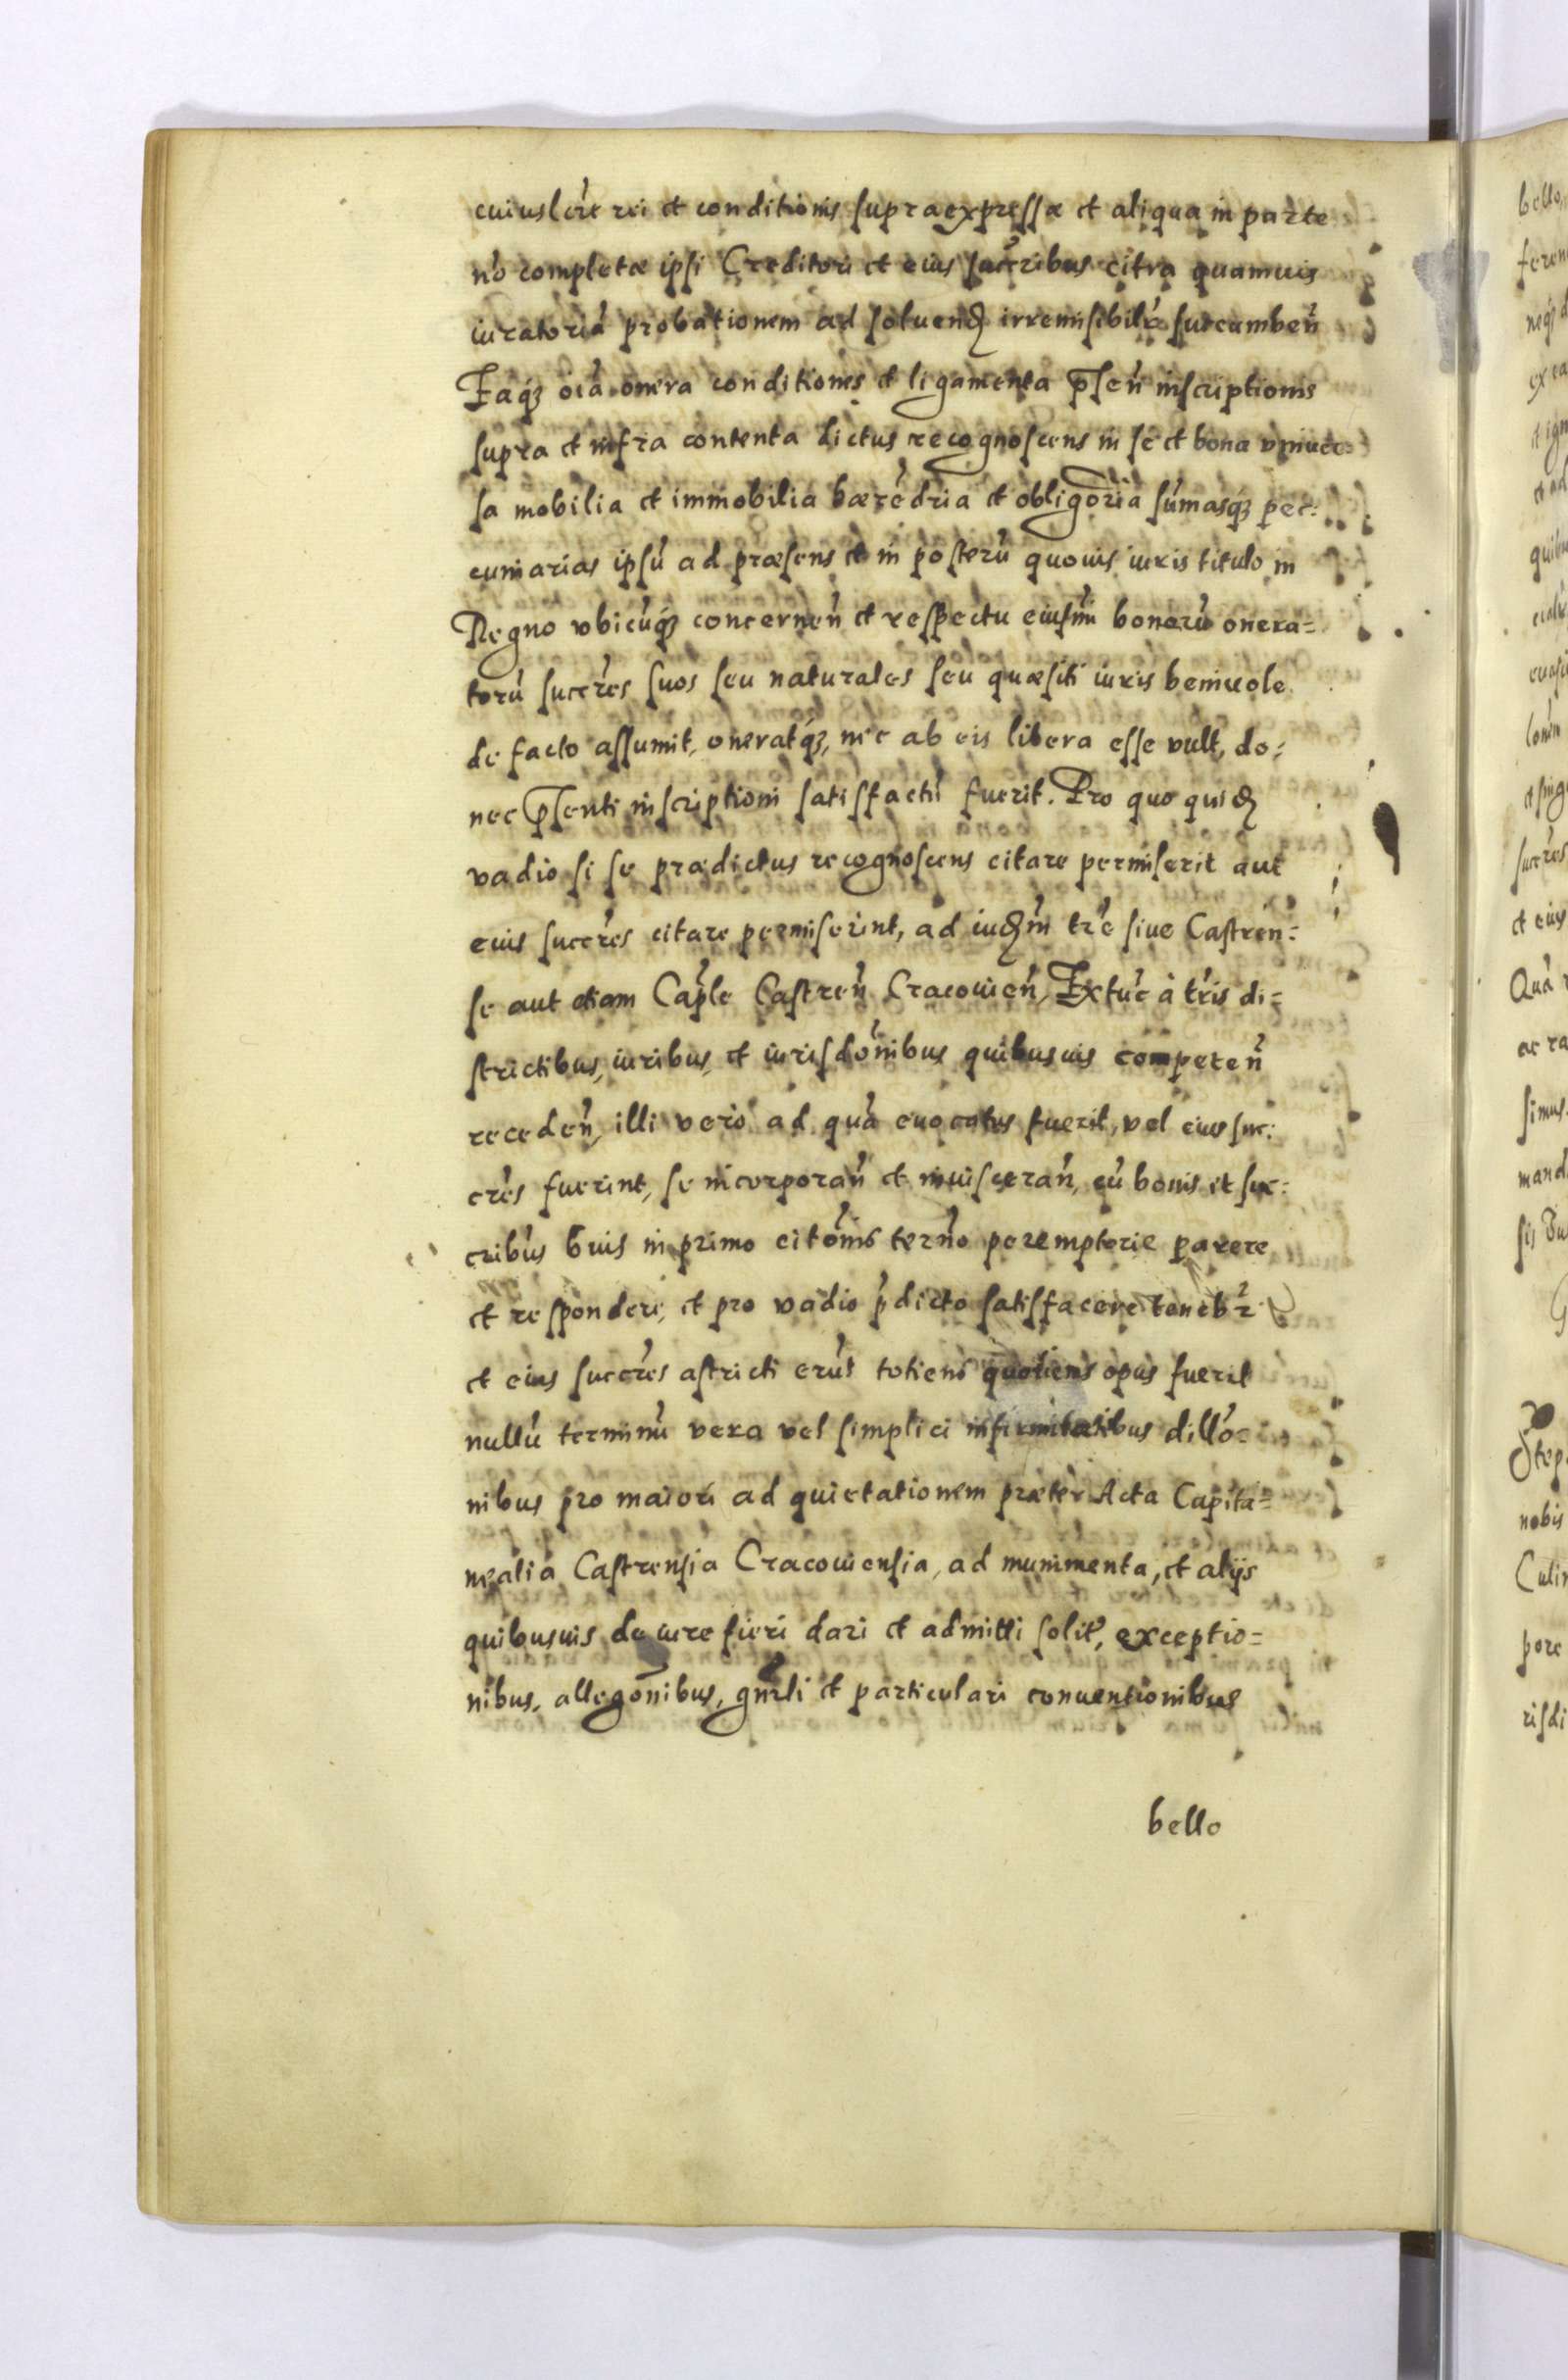 cuiuslĩre rei et conditionis supraexpressæ et aliqua in parte
nõ completæ ipsi Creditori et eius succ̃ribus citra quamuis
iuratoriã probationem ad soluend̃ irremisibilr̃ succumbeñ
Eaq́ʒ oĩa onera conditiones et ligamenta p̃señ inscriptionis
supra et infra contenta dictus recognoscens in se et bona vniuer=
sa mobilia et immobilia hærẽdria et obligõria sũmasq́ʒ pec:
cuniarias ipsũ ad præsens et in posterũ quouis iuris titulo in
Regno vbicũq́ʒ concerneñ et respectu eiusm̃i bonorũ onera=
torũ succr̃es suos seu naturales seu quæsiti iuris beniuole
de facto assumit, oneratq́ʒ, nec ab eis libera esse vult, do=
nec p̃senti inscriptioni satisfactũ fuerit. Pro quo quid̃
vadio si se prædictus recognoscens citare permiserit aut
eius succr̃es citare permiserint, ad iud̃m tr̃e siue Castren=
se aut etiam Cap̃le Castreñ Cracouieñ, Extũc à tr̃is di=
strictibus, iuribus, et iurisdõnibus quibusuis competeñ
recedeñ, illi verò ad quã euocatus fuerit, vel eius suc:
cr̃es fuerint, se incorporañ et inuisceran̄, cũ bonis et suc=
cribũs s̃uis in primo citõnis termño peremptorie parere
et respondere, et pro vadio p̃dicto satisfacere teneb̃r
et eius succr̃es astricti erũt totiens quotiens opus fuerit
nullũ terminũ vera vel simplici infirmitatibus dillõ=
nibus pro maiori ad quietationem præter Acta Capita=
nealia Castrensia Cracouiensia, ad munimenta, et alijs
quibusuis de iure fieri dari et admitti solit̃, exceptio=
nibus, allegõnibus, gñrli et particulari conuentionibus
bello